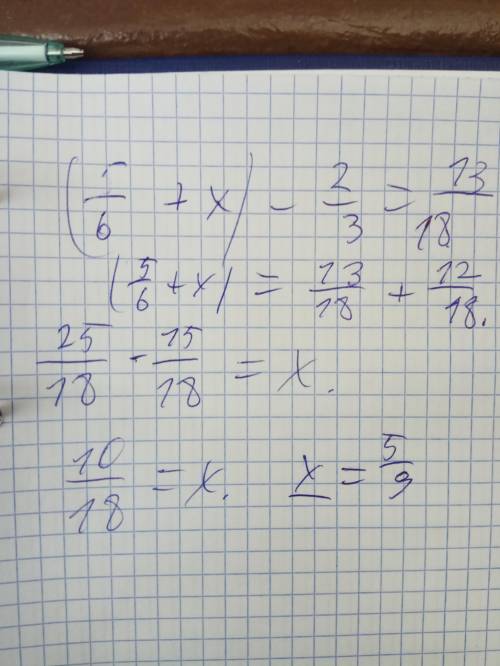 (5/6 + x) - 2/3 = 13/18
(5/6 + x) = 13/18 + 12/18.
25/18 - 15/18 = x.
10/18 = x. x = 5/9